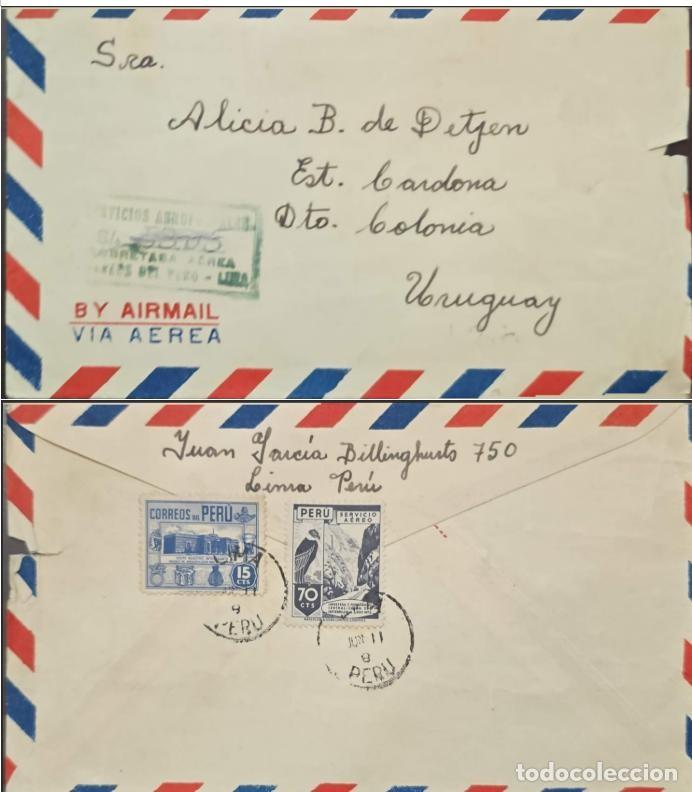 Sra.
Alicia B. de Detjen
Est. Cardona
Dto. Colonia
Uruguay
SERVICIOS
SOBRETASA AEREA
DEL PERU - LIMA
BY AIRMAIL
VIA AEREA
Juan García Billinghusto 750
Lima Perú
CORREOS DEL PERÚ
15
CTS
PERÚ
SERVICIO
AÉREO
70
CTS
LIMA
11
9
PERU
JUN 11
9
PERU
todocoleccion